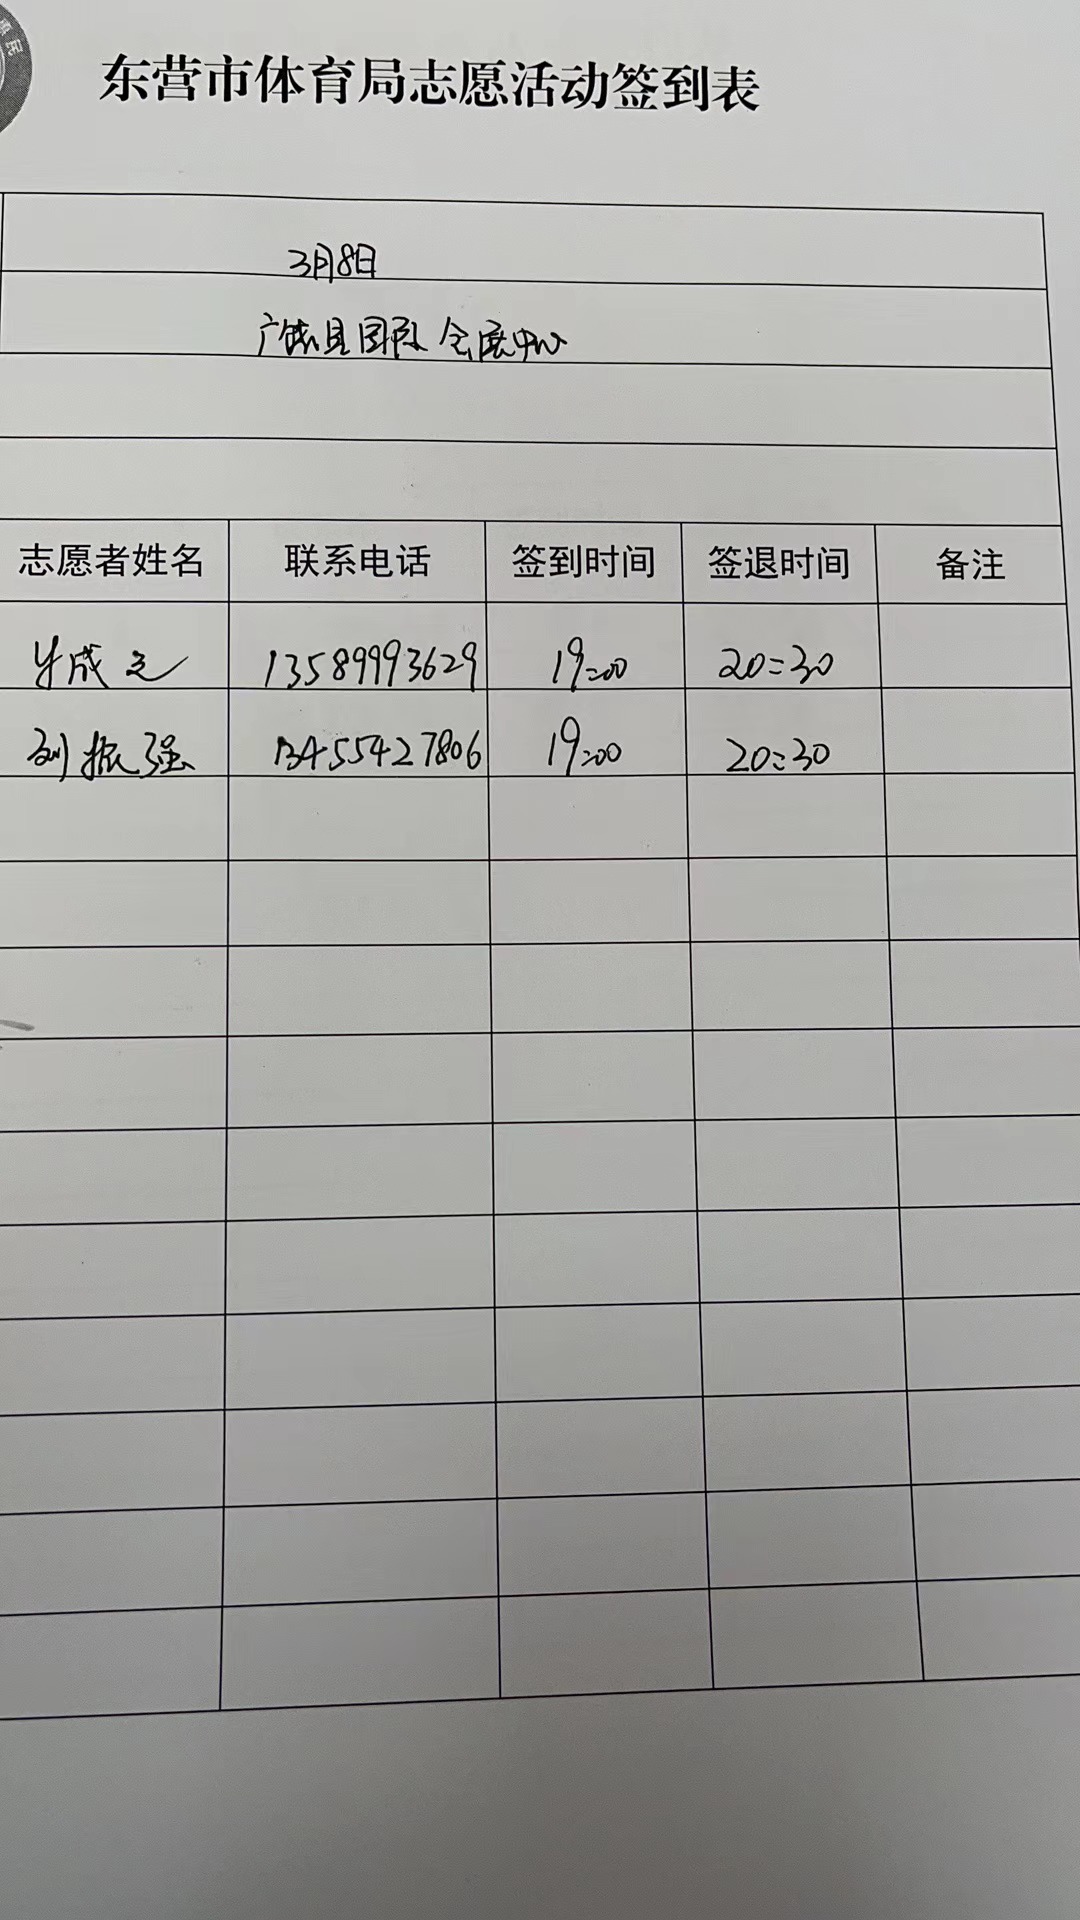 东营市体育局志愿活动签到表
3月8日
广饶县团队 会展中心
志愿者姓名 联系电话 签到时间 签退时间 备注
牛成之 13589993629 19:00 20:30
刘振强 13455427806 19:00 20:30